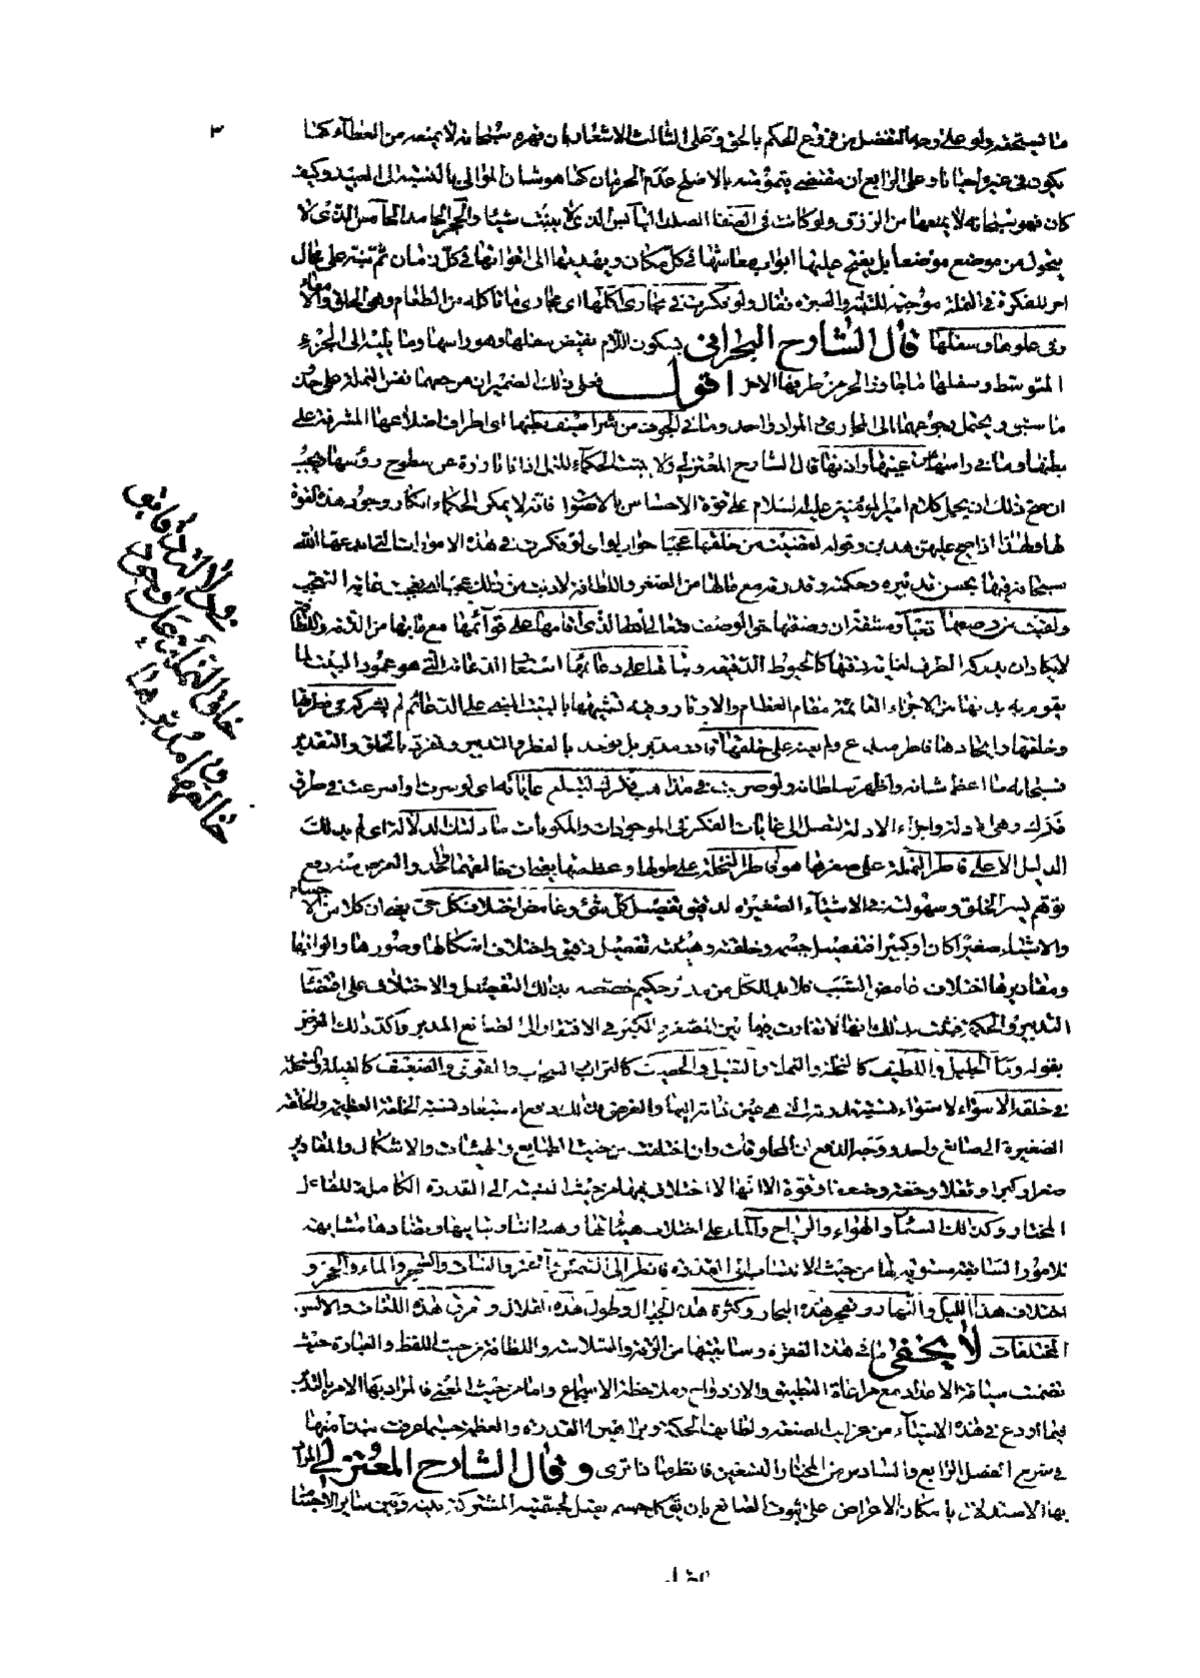 ٣
ما يستحقه ولو على وجه التفضل من فروع الحكم بالحق وعلى الثالث الاشعار بان قهره سبحانه لا يمنعه من العطاء كما
يكون في غيره احيانا وعلى الرابع ان مقتضى قيمومته بالاصلح عدم الحرمان كما هو شان الموالي بالنسبة الى العبيد وكيف
كان فهو سبحانه لا يمنعها من الرزق ولو كانت في الصفا الصلد اليابس الذي لا ينبت شيئا والحجر الجامد الجامس الذي لا
يتحول من موضع موضعا بل يفتح عليها ابواب معاشها في كل مكان ويهديها الى اقواتها في كل زمان ثم نبه على محال
اخر للفكرة في النملة موجبة للتنبه والعبرة فقال ولو فكرت في مجاري اكلها اي مجاري ما تاكله من الطعام وهي الحلق والامعاء
وفي علوها وسفلها قال الشارح البحراني بسكون اللام نقيض سفلها وهو راسها وما يليه الى الجزء
المتوسط وسفلها ما جاوز الجزء من طرفها الاخر اقول فعلى ذلك الضميران مرجعهما نفس النملة على حذو
ما سبق ويحتمل رجوعهما الى المجاري والمراد واحد وما في الجوف من شراسيف بطنها اي اطراف اضلاعها المشرفة على
بطنها وما في راسها من عينها واذنها قال الشارح المعتزلي ولا يثبت الحكماء للنمل اذانا بارزة عن سطوح رؤسها ويجب
ان صح ذلك ان يحمل كلام امير المؤمنين عليه السلام على قوة الاحساس بالاصوات فانه لا يمكن الحكماء انكار وجود هذه القوة
لها ولهذا اذا صيح عليهن هربن وقوله لقضيت من خلقها عجبا جواب لو اي لو فكرت في هذه الامور التي ابدعها الله
سبحانه فيها بحسن تدبيره وحكمته وقدرته مع مالها من الصغر واللطافة لاديت من ذلك عجبا اي عجبت غاية التعجب
ولقيت من وصفها تعبا ومشقة ان وصفتها حق الوصف فتعالى الله الذي اقامها على قوائمها مع ما بها من الدقة واللطافة
لا يكاد ان يدركها الطرف لغاية دقتها كالخيوط الدقيقة وبناها على دعائمها استعار الدعائم التي هو عمود البيت لما
يقوم به بدنها من الاجزاء القائمة مقام العظام والاوتار وفيه تشبيهها بالبيت المبني على الدعائم لم يشركه في فطرتها
وخلقها وايجادها فاطر مبدع ولم يعنه على خلقها قادر مدبر بل توحد بالفطر والتدبير وتفرد بالخلق والتقدير
فسبحانه ما اعظم شانه واظهر سلطانه ولو ضربت في مذاهب فكرك لتبلغ غاياته اي لو سرت واسرعت في طرق
فكرك وهي الادلة واجزاء الادلة لتصل الى غايات الفكر في الموجودات والمكونات ما دلتك الدلالة اي لم يدلك
الدليل الا على فاطر النملة على صغرها هو فاطر النخلة على طولها وعظمها يعني ان خالقهما واحد والغرض منه دفع
توهم يسر الخلق وسهولته في الاشياء الصغيرة لدقيق تفصيل كل شيء وغامض اختلاف كل حي يعني ان كلا من الاجسام
والاشياء صغيرا كان او كبيرا فتفصيل جسمه وخلقته وهيئته تفصيل دقيق واختلاف اشكالها وصورها والوانها
ومقاديرها اختلاف غامض السبب فلا بد للكل من مدبر حكيم خصصه بذلك التفصيل والاختلاف على اقتضاء
التدبير والحكمة فثبت بذلك انها لا تفاوت فيها بين الصغير والكبير في الافتقار الى الصانع المدبر واكد ذلك الغرض
بقوله وما الجليل واللطيف كالنخلة والنملة والثقيل والخفيف كالتراب والسحاب والقوي والضعيف كالفيلة والنملة
في خلقه الا سواء لاستواء نسبة قدرته التي هي عين ذاته اليها والغرض بذلك دفع استبعاد نسبة الخلقة العظيمة والخلقة
الصغيرة الى صانع واحد ووجه الدفع ان المخلوقات وان اختلفت من حيث الطبايع والهيئات والاشكال والمقادير
صغرا وكبرا وثقلا وخفة وضعفا وقوة الا انها لا اختلاف فيها من حيث النسبة الى القدرة الكاملة للفاعل
المختار وكذلك السماء والهواء والرياح والماء على اختلاف هيئاتها وهذا تشابهها وتضادها مشابهة
للامور السابقة مستوية لها من حيث الانتساب الى القدرة فانظر الى الشمس والقمر والنبات والشجر والماء والحجر و
اختلاف هذا الليل والنهار وتفجر هذه البحار وكثرة هذه الجبال وطول هذه القلال وتفرق هذه اللغات والالسن
المختلفات لا يخفى ما في هذه الفقرة وسابقتها من الرقة والسلاسة واللطافة من حيث اللفظ والعبارة حيث
تضمنت سياقة الاعداد مع مراعاة التطبيق والازدواج وملاحظة الاسجاع واما من حيث المعنى فالمراد بها الامر بالتدبر
فيما اودع في هذه الاشياء من غرايب الصنعة ولطايف الحكمة وبراهين القدرة والعظمة حسبما عرفت نبذا منها
في شرح الفصل الرابع والسادس من المختار والتسعين فانظر ماذا ترى وقال الشارح المعتزلي المراد
بها الاستدلال بامكان الاعراض على ثبوت الصانع بان يق كل جسم يقبل للجسمية المشتركة بينه وبين ساير الاجسام
خلق النملة
خالقها مدبرها